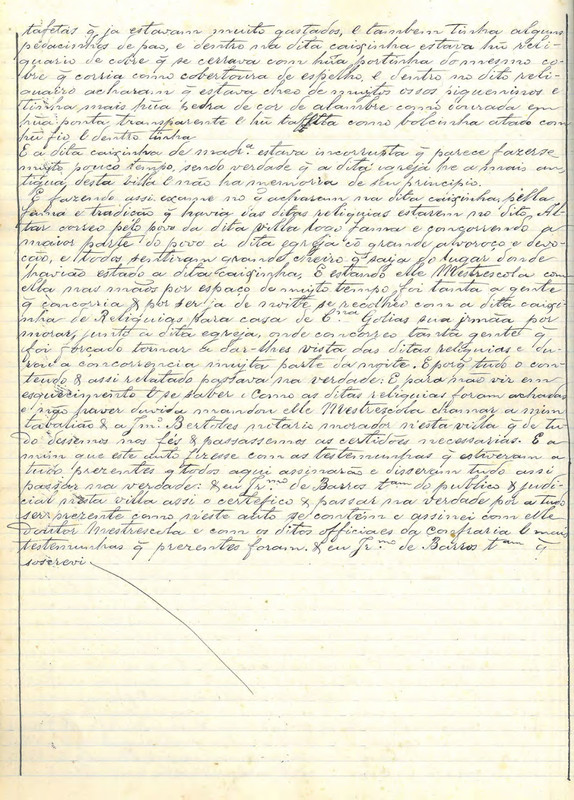 tafetas q̃ ja estavam muito gastados, e tambem tinha alguns
pedacinhos de pao, e dentro na dita caixinha estava hũ reli-
quario de cobre q̃ se cerrava com hũa portinha do mesmo co-
bre q̃ corria como cobertoura de espelho, e dentro no dito reli-
quairo acharam q̃ estava cheo de muitos ossos piqueninos e
tinha mais hũa pedra de cor de alambre como courada em
hũa ponta transparente e hũ taffeta como bolcinha atado com
hũ fio e dentro tinha
E a dita caixinha de madrª estava incorruta q̃ parece fazerse
muyto pouco tempo, sendo verdade q̃ a dita igreja he a mais an-
tigua desta villa e não ha memoria de seu principio.
E fazendo assi exame no q̃ acharam na dita caixinha, pella
fama e tradição q̃ havia das ditas reliquias estarem no dito Al-
tar correo pelo povo da dita villa logo fama e concorrendo a
maior parte do povo á dita egreja cõ grande alvoroço e devo-
ção, e todos sentiram grande cheiro q̃ saia do lugar donde
havião estado a dita caixinha, E estando elle Mestrescola com
ella nas mãos por espaço de muyto tempo, foi tanta a gente
q̃ concorria & por ser ja de noite, se recolheo com a dita caixi-
nha de Reliquias para casa de Cna Golias sua irmãa por
morar, junto á dita egreja, onde concorreo tanta gente q̃
foi forçado tornar a dar-lhes vista das ditas reliquias e du-
rou a concorrencia muyta parte da noite. E porq̃ tudo o con-
teudo & assi relatado passava na verdade: E para não vir em
esquecimento & se saber como as ditas reliquias foram achadas
e não haver duvida mandou elle Mestrescola chamar a mim
tabalião & a Jmº Bertoles notario morador nesta villa q̃ de tu-
do dessemos nos fés & passassemos as certidões necessarias. E a
mim que este auto fizesse com as testemunhas q̃ estiveram a
tudo prezentes q̃ todos aqui assinarão e disseram tudo assi
passar na verdade: & eu Jrmo de Barros tam do publico & judi-
cial nesta villa assi o certefico & passar na verdade por a tudo
ser prezente como neste auto se contem e assinei com elle
doutor Mestrescola e com os ditos officiaes da confraria e mais
testemunhas q̃ prezentes foram. & eu Jrmo de Barros tam q̃
soscrevi